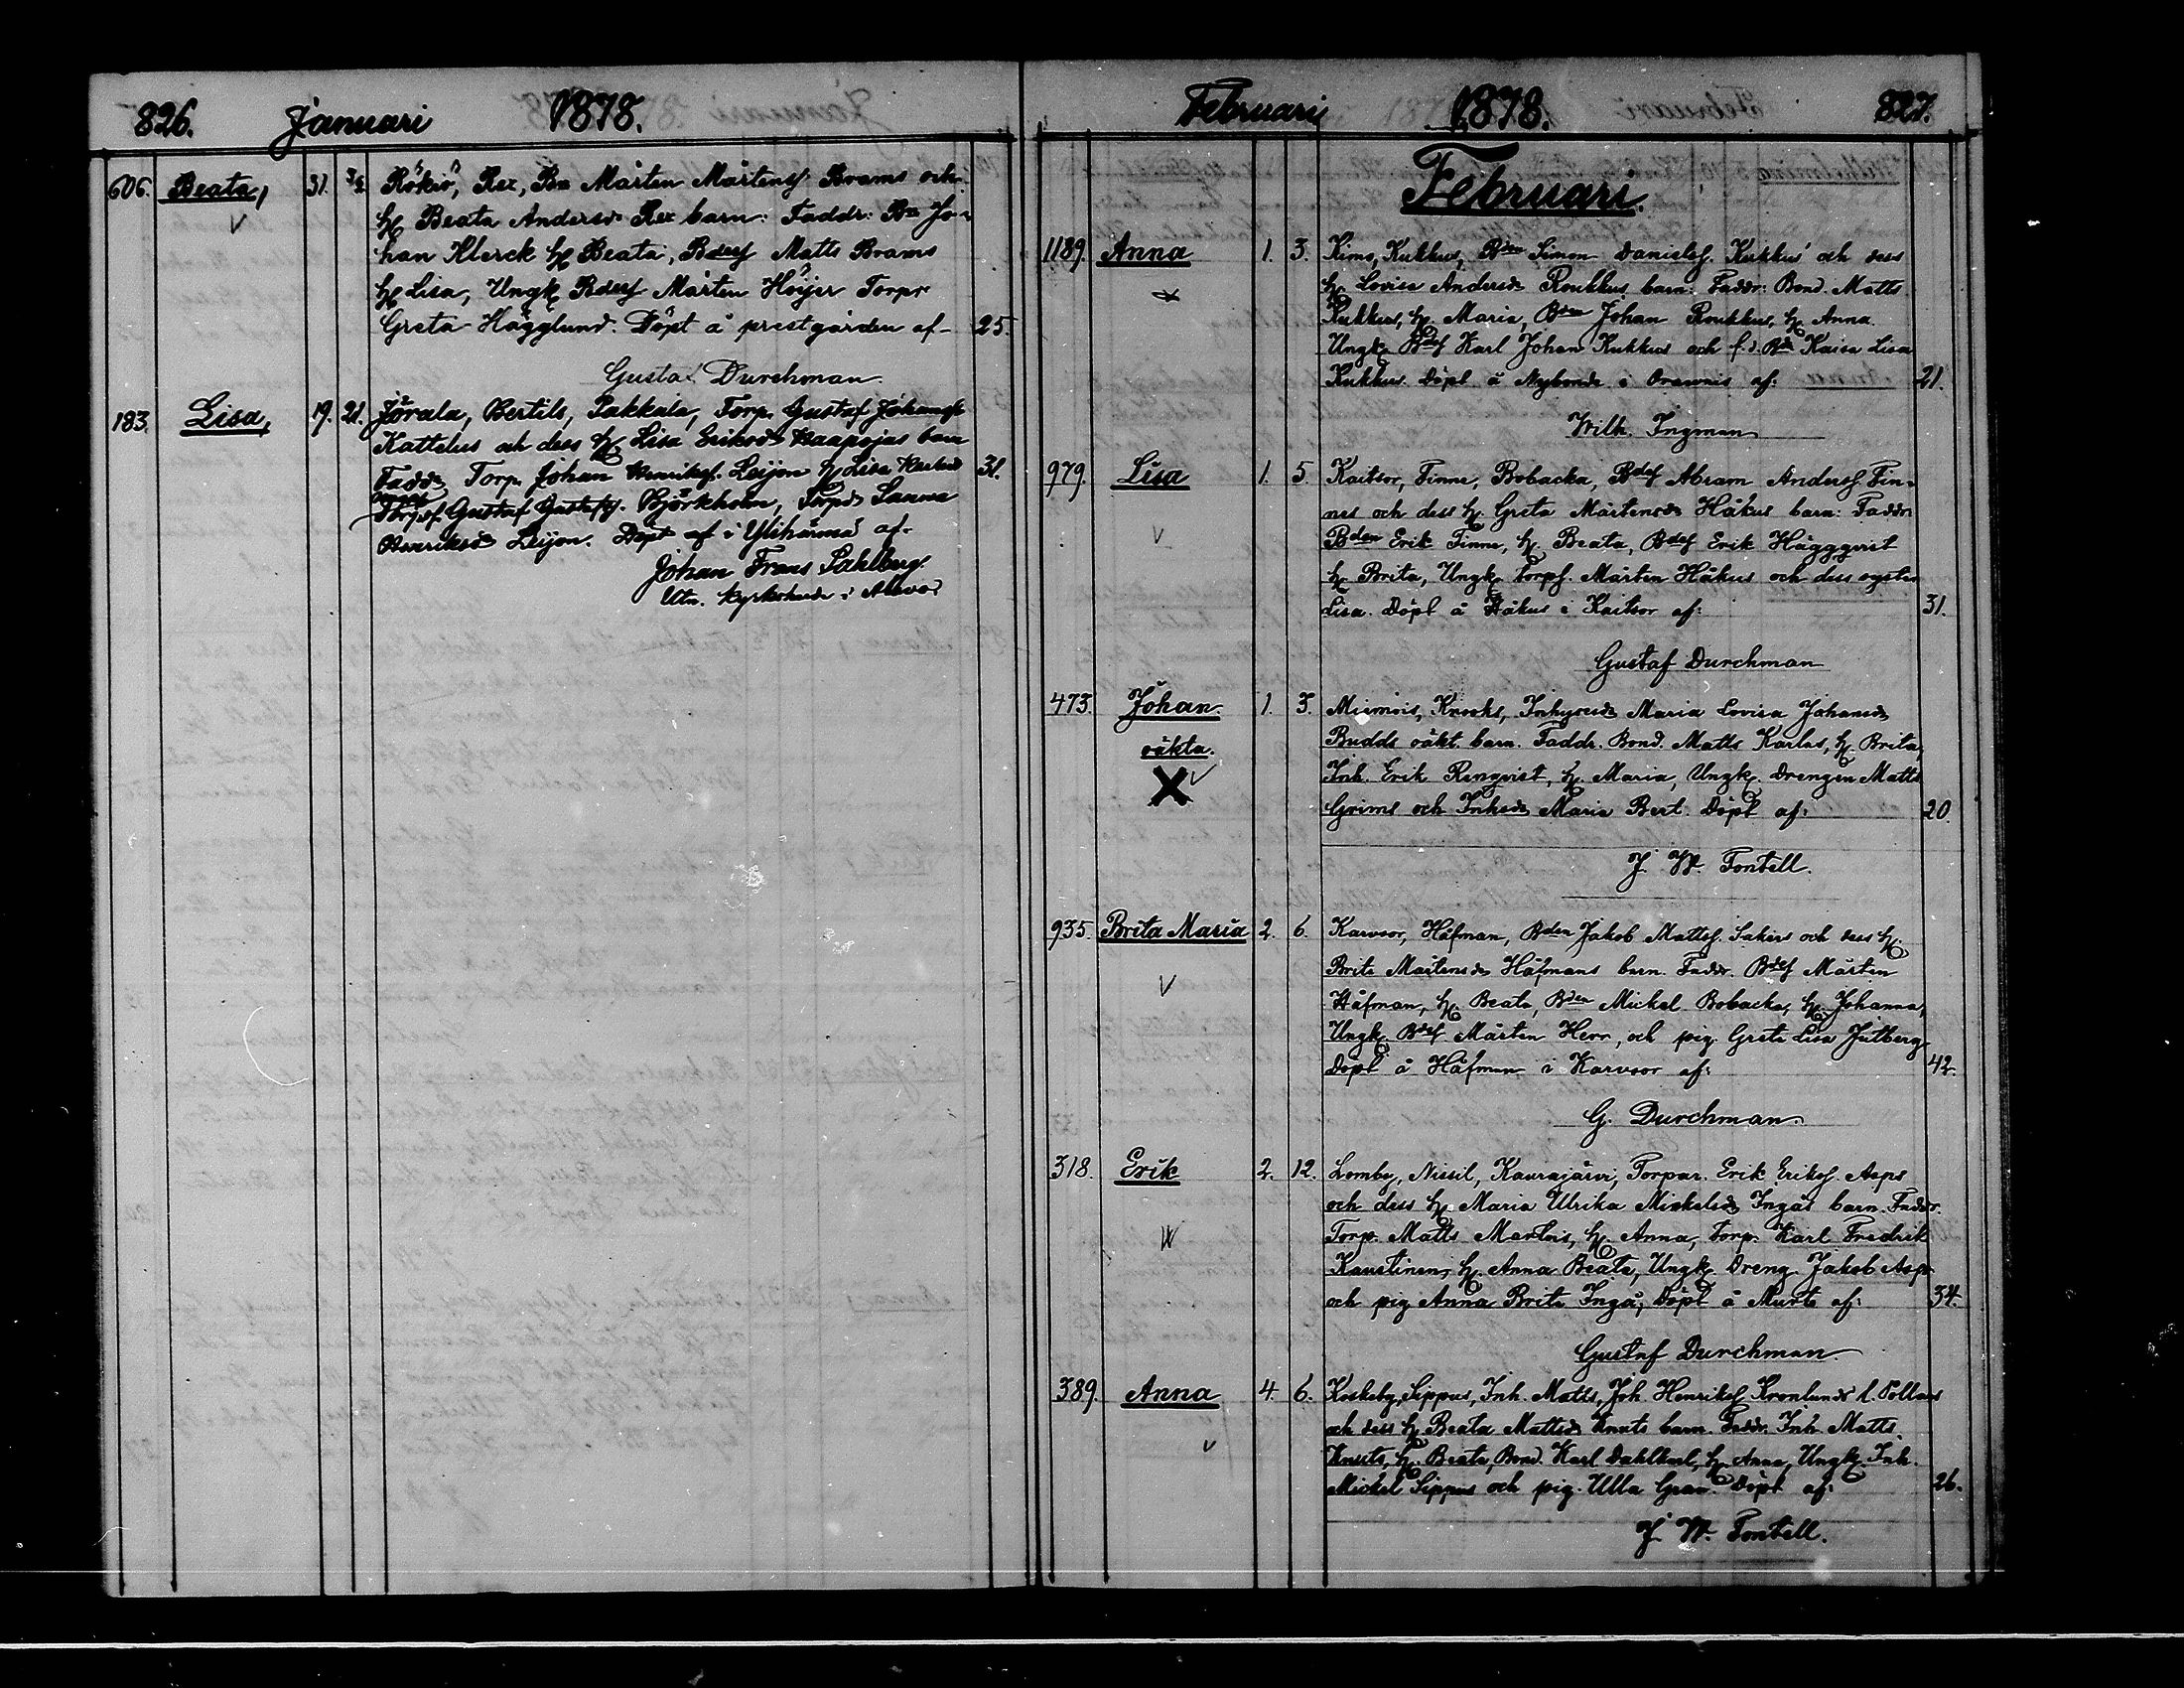 826. Januari 1878.
606. Beata, 31. 3/2 Rökiö, Rex, Bn Mårten Mårtens Brams och
h Beata Andersdr Rex barn: Faddr: Bn Jo-
han Klerck h Beata, Bdess Matts Brams
h Lisa, Ungk Bdess Mårten Höijer Torpr
Greta Hägglund. Döpt å prestgården af- 25.
Gustaf Durchman.
183. Lisa, 19. 21. Jörala, Bertils, Pakkala, Torp. Gustaf Johanss
Kattelus och dess h Lisa Eriksdr Haapojas barn
Fadd. Torp. Johan Henrikss. Leijon h Lisa 31.
Gustaf Gustafss. Björkholm, Torpdr Sanna
Henriksdr Leijon. Döpt af i Ylihärmä af-
Johan Frans Sahlberg.
Utn. Kyrkoherde i Alavo
Februari 1878. 827.
Februari.
1189. Anna 1. 3. Kimo, Kukkus, Bden Simon Danielss. Kukkus och dess
h. Lovisa Andersdr Roukkus barn. Faddr: Bond. Matts
Kukkus, h. Maria, Bden Johan Roukkus, h Anna.
Ungk. Bdess Karl Johan Kukkus och f.d. Bdr Kaisa Lisa
Kukkus. Döpt å Nybonde i Orawais af: 21.
Wilh. Ingman
979. Lisa 1. 5. Kaitsor, Finne, Bobacka, Bdess Abram Anderss. Fin-
nes och dess h. Greta Mårtensdr Håkus barn: Faddr:
Bden Erik Finne, h. Beata, Bdess Erik Häggqvist
h. Brita, Ungk. torps. Mårten Håkus och dess syster
Lisa. Döpt å Håkus i Kaitsor af: 31.
Gustaf Durchman
473. Johan. 1. 3. Miemois, Krooks, Inhysesdr Maria Lovisa Johansdr
oäkta. Budds oäkt. barn. Faddr. Bond. Matts Karlus, h. Brita,
Inh. Erik Renqvist, h. Maria, Ungk. Drengen Matts
Grims och Inhsdr Maria Bert. Döpt af: 20.
J. W. Fontell.
935. Brita Maria 2. 6. Karvsor, Håfman, Bden Jakob Mattss. Sakers och dess h.
Brita Mårtensdr Håfmans barn. Faddr. Bdess Mårten
Håfman, h. Beata, Bden Mickel Bobacka, h. Johanna,
Ungk. Bdess Mårten Herr, och pig. Greta Lisa Jutberg.
Döpt å Håfman i Karvsor af: 42.
G. Durchman.
318. Erik 2. 12. Lomby, Nissil, Kaurajärvi, Torpar. Erik Erikss. Asps
och dess h. Maria Ulrika Mickelsdr Ingås barn. Faddr.
Torp. Matts Martois, h. Anna, torp. Karl Fredrik
Kaustinen, h. Anna Beata, Ungk. Dreng. Jakob Asp
och pig Anna Brita Ingå, Döpt å Murto af: 34.
Gustaf Durchman.
389. Anna 4. 6. Koskeby, Sippus, Inh. Matts, Joh. Henrikss Kronlunds l. Pollars
och dess h Beata Mattsdr Knuts barn. Faddr. Inh. Matts
Knuts, h. Beata, Bond. Karl Dahlkarl, h. Anna, Ungk. Inh.
Mickel Sippus och pig. Ulla Gran. Döpt af: 26.
J. W. Fontell.